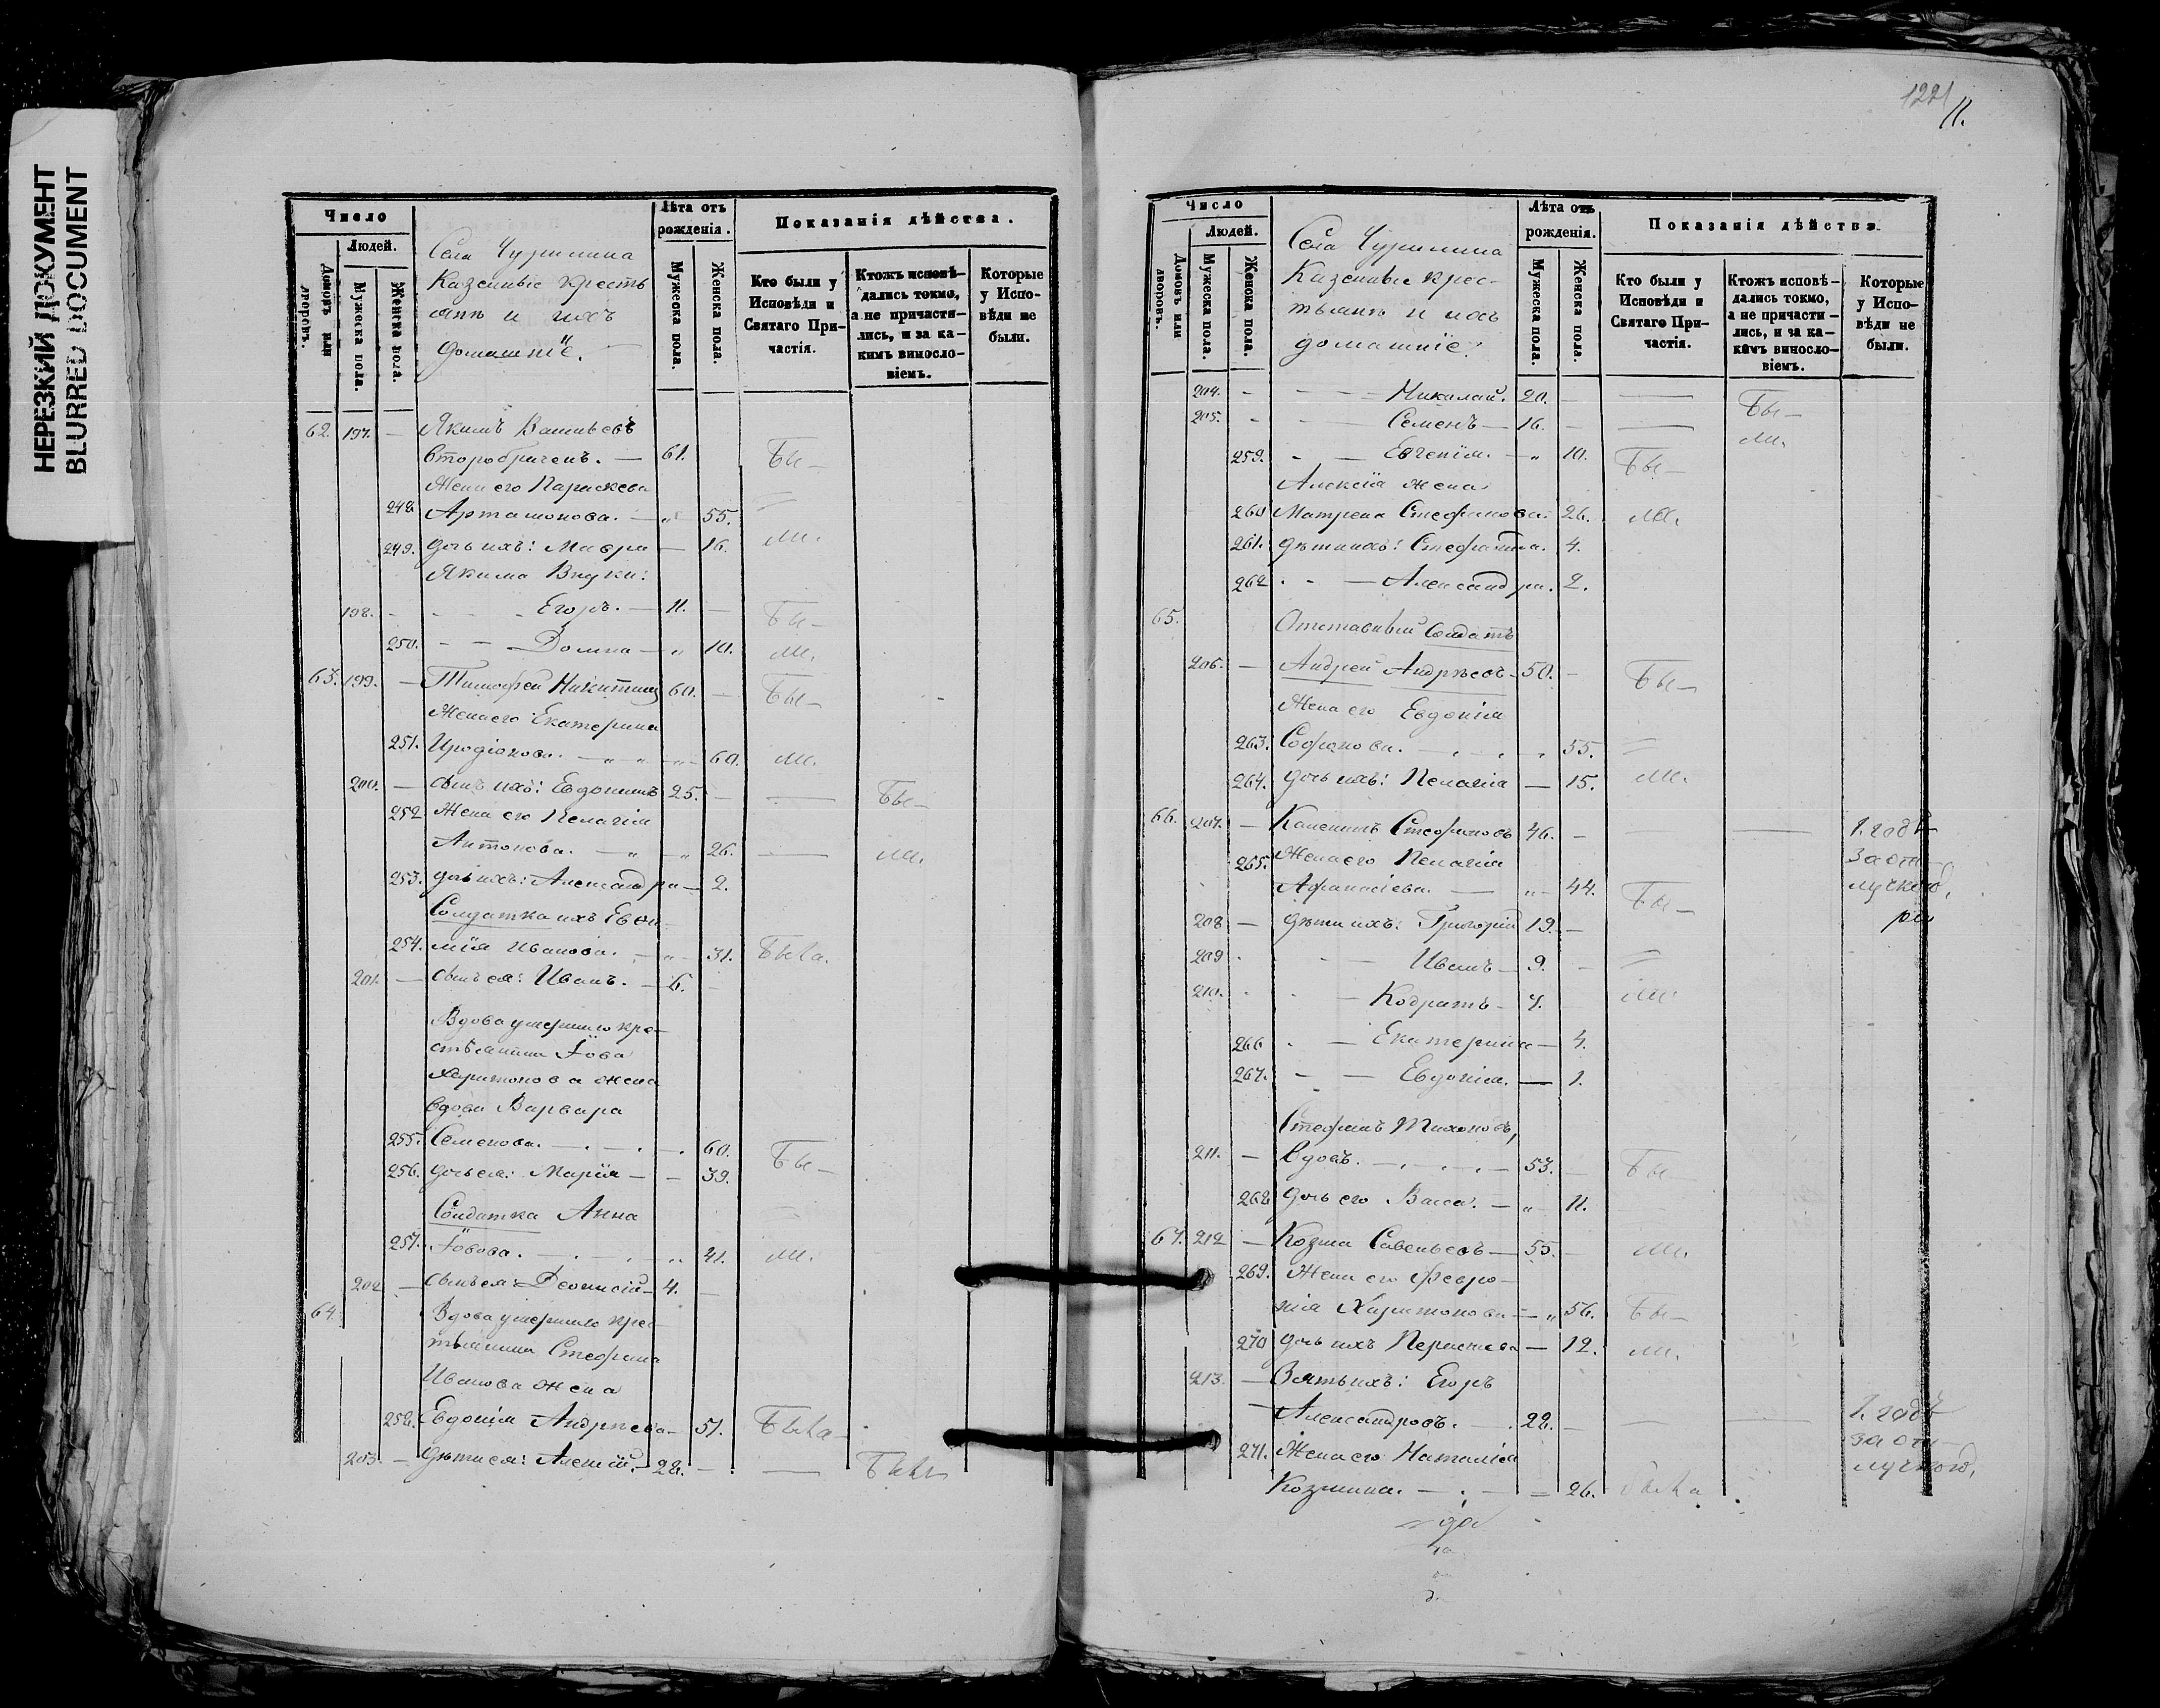 НЕРЕЗКИЙ ДОКУМЕНТ
BLURRED DOCUMENT
Число
Людей.
Домовъ или дворовъ.
Мужеска пола.
Женска пола.
Села Чурилина
Казенные Кресть
яне и ихъ
домашніе.
Лѣта отъ рожденія.
Мужеска пола.
Женска пола.
Показанія дѣйства.
Кто были у Исповѣди и Святаго Причастія.
Ктожъ исповѣ-
дались токмо,
а не причасти-
лись, и за ка-
кимъ винословіемъ.
Которые у Испо-
вѣди не были.
62. 197. — Якимъ
Второбраченъ. — 61. Бы—
Жена его Параскева
248. Артамонова. — „ 55.
249. дочь ихъ: Мавра — 16. ли.
Якима Внуки:
198. - - - Егоръ. — 11. — Бы—
250. - - Домна — „ 10. ли.
63. 199. — Тимофей Никитинъ 60. — Бы—
Жена его Екатерина
251. Иродіонова. — „ „ — 60. ли.
200. — сынъ ихъ: Евдокимъ 25. — — Бы—
252. Жена его Пелагія
Антонова. — „ — „ 26. — ли.
253. дочь ихъ: Александра — 2.
Солдатка ихъ
254. мія Иванова. — „ 31. Была.
201. — сынъ ея: Иванъ. — 6. —
Вдова умершаго кре-
стьянина Іова
Харитонова жена
вдова Варвара
255. Семенова. — . — . 60. Бы—
256. дочь ея: Марія — — 39.
Солдатка Анна
257. Іовова. — . — „ 41. ли.
202 — сынъ ея: Деонисій — 4. —
64. Вдова умершаго крес-
тьянина Стефана
Иванова жена
258. Евдокія Андреева — 51. Была—
203. — дѣти ея: Алексій. — 28. — — Былъ
1221
11.
Число
Людей.
Домовъ или дворовъ.
Мужеска пола.
Женска пола.
Села Чурилина
Казенные крес-
тьяне и ихъ
домашніе.
Лѣта отъ рожденія.
Мужеска пола.
Женска пола.
Показанія дѣйства.
Кто были у Исповѣди и Святаго При-
частія.
Ктожъ исповѣ-
дались токмо,
а не причасти-
лись, и за ка-
кимъ винословіемъ.
Которые у Испо-
вѣди не были.
204. - — - Николай. 20. — — Бы—
205. - — Семенъ — 16. — — ли.
259. - — Евгенія. — „ 10. Бы—
Алексія жена
260 Матрена Стефанова. 26. ли.
261. дѣти ихъ: Стефанида. 4.
262 . - — Александра. 2.
65. Отставный Солдатъ
206. — Андрей Андреевъ — 50. — Бы—
Жена его Евдокія
263. Софонова. — . . „ 55.
264. дочь ихъ: Пелагія — 15. ли.
66. 207. — Калиникъ Стефановъ 46. — — — 1. годъ
265. Жена его Пелагія за от-
Афанасіева. — „ 44. Бы— лучкою,
208 — дѣти ихъ: Григорій 19. —
209 . - — Иванъ — 9. —
210. . . — Кодратъ — 7. ли
266 . — Екатерина — 4.
267. - — Евдокія. — 1.
Стефанъ Тихоновъ,
211. — вдовъ. — . . — 53. — Бы—
268 дочь его Васса. — „ 11.
67. 212 — Козма Савельевъ — 55. — ли.
269. Жена его Февро-
нія Харитонова — „ 56. Бы—
270 дочь ихъ — 12. ли.
213. — Зять ихъ: Егоръ
Александровъ. — . 22. — — — 1. годъ
271. Жена его Наталія за от-
Козмина. — . — 26. была лучкою,